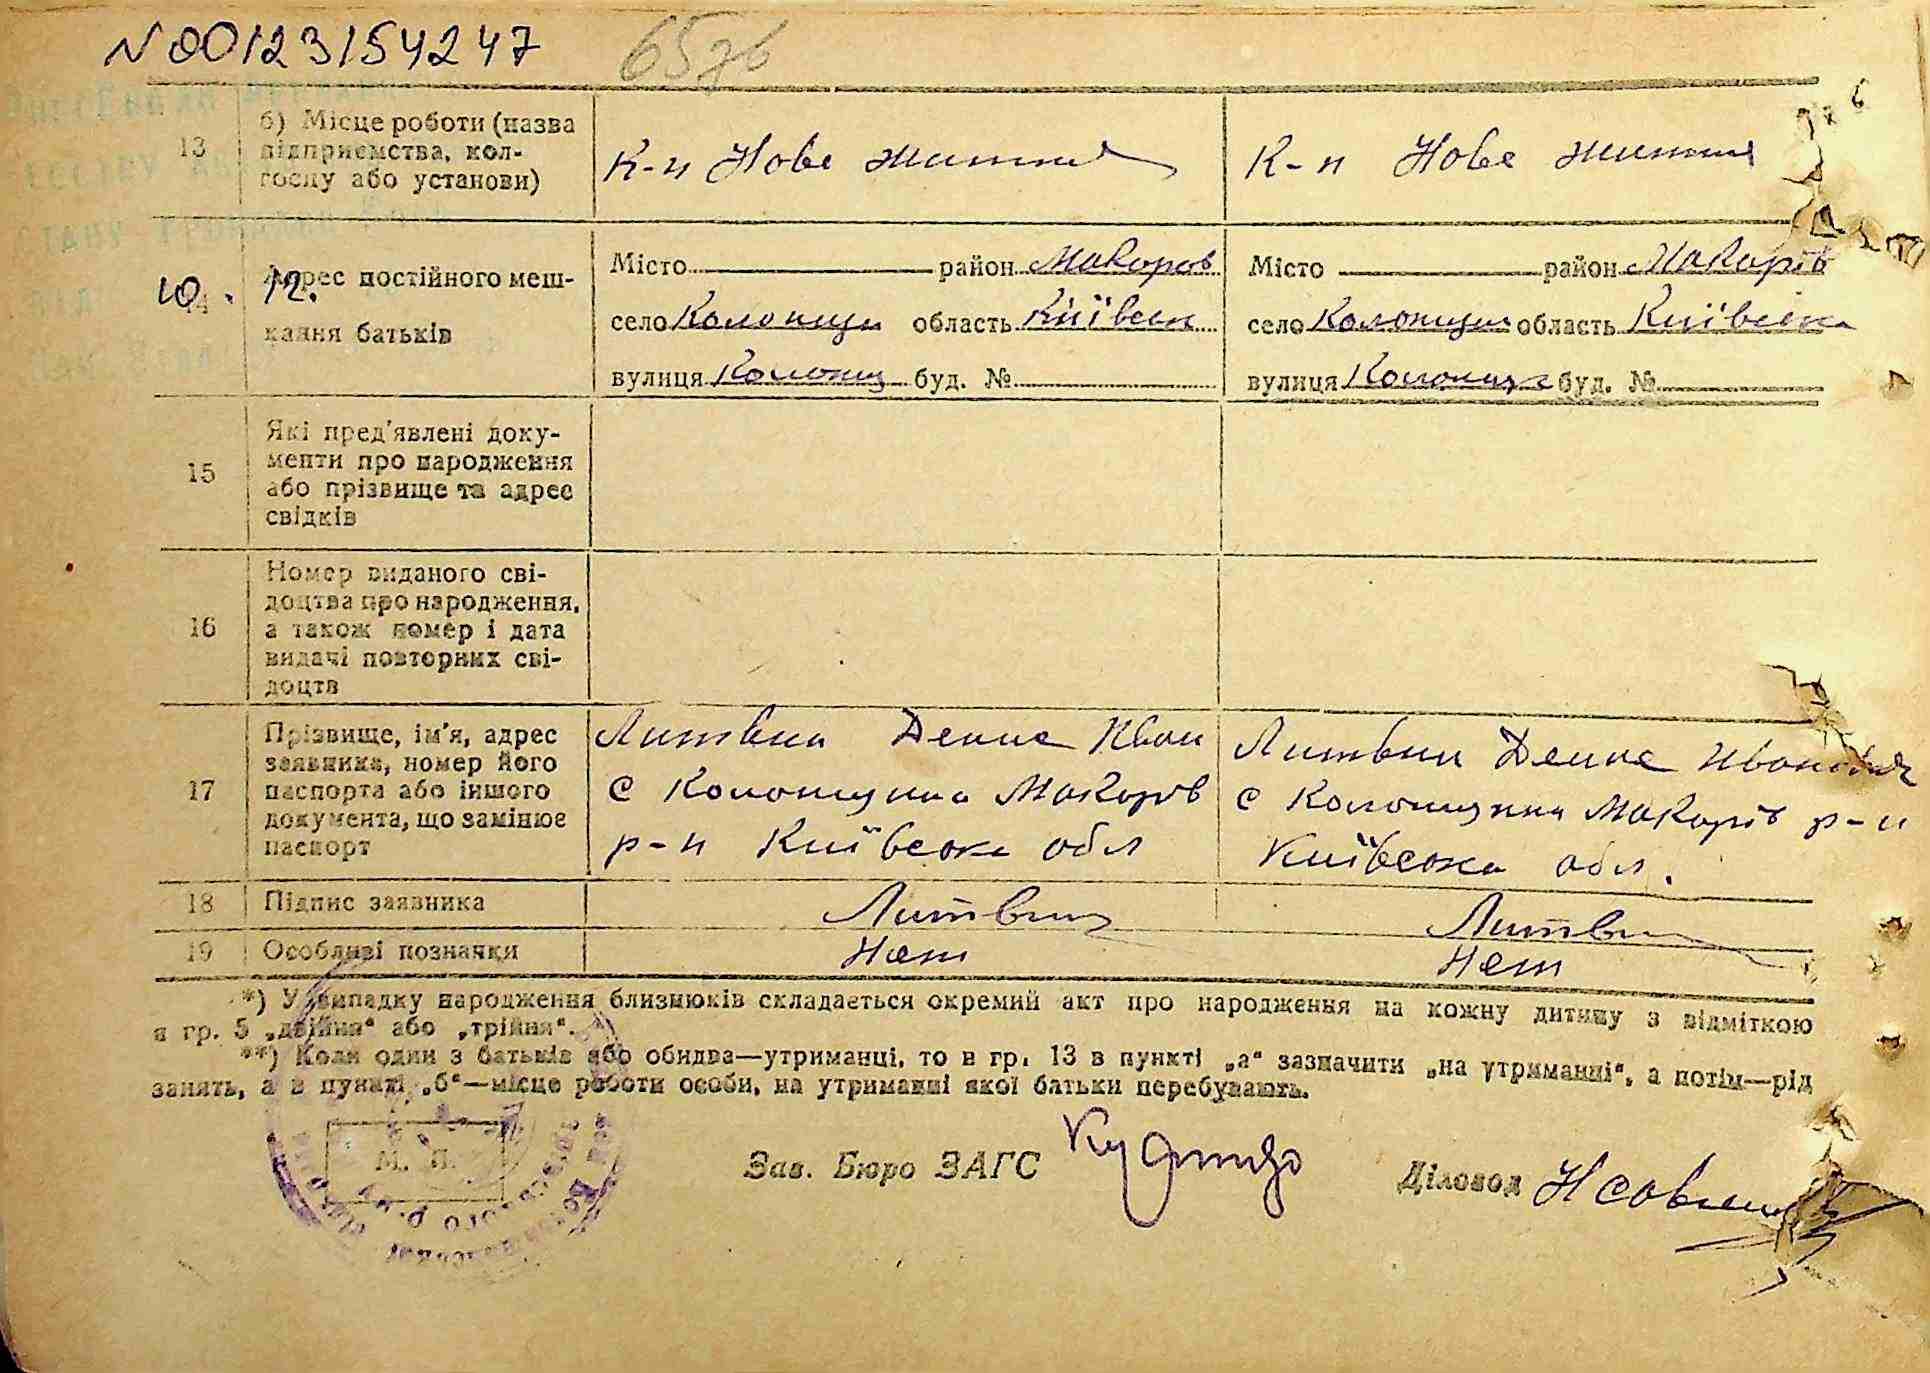 N 00123154247 65зв
6
13 б) Місце роботи (назва підприємства, колгоспу або установи)
К-п Нове життя
К-п Нове життя
10. 12.
14 Адрес постійного мешкання батьків
Місто район Макоров
село Колонщи область Київськ
вулиця Колонщ буд. №
Місто район Макорів
село Колонщин область Київська
вулиця Колонщ буд. №
15 Які пред'явлені документи про народження або прізвище та адрес свідків
16 Номер виданого свідоцтва про народження, а також номер і дата видачі повторних свідоцтв
17 Прізвище, ім'я, адрес заявника, номер його паспорта або іншого документа, що замінює паспорт
Литвин Денис Иван
с Колонщина Макорів
р-н Київська обл
Литвин Денис Иванович
с Колонщина Макорів р-н
Київська обл.
18 Підпис заявника Литвин Литвин
19 Особливі позначки Нет Нет
*) У випадку народження близнюків складається окремий акт про народження на кожну дитину з відміткою
в гр. 5 „двійня“ або „трійня“.
**) Коли один з батьків або обидва—утриманці, то в гр. 13 в пункті „а“ зазначити „на утриманні“, а потім—рід
занять, а в пункті „б“—місце роботи особи, на утриманні якої батьки перебувають.
М. П.
Зав. Бюро ЗАГС
Діловод